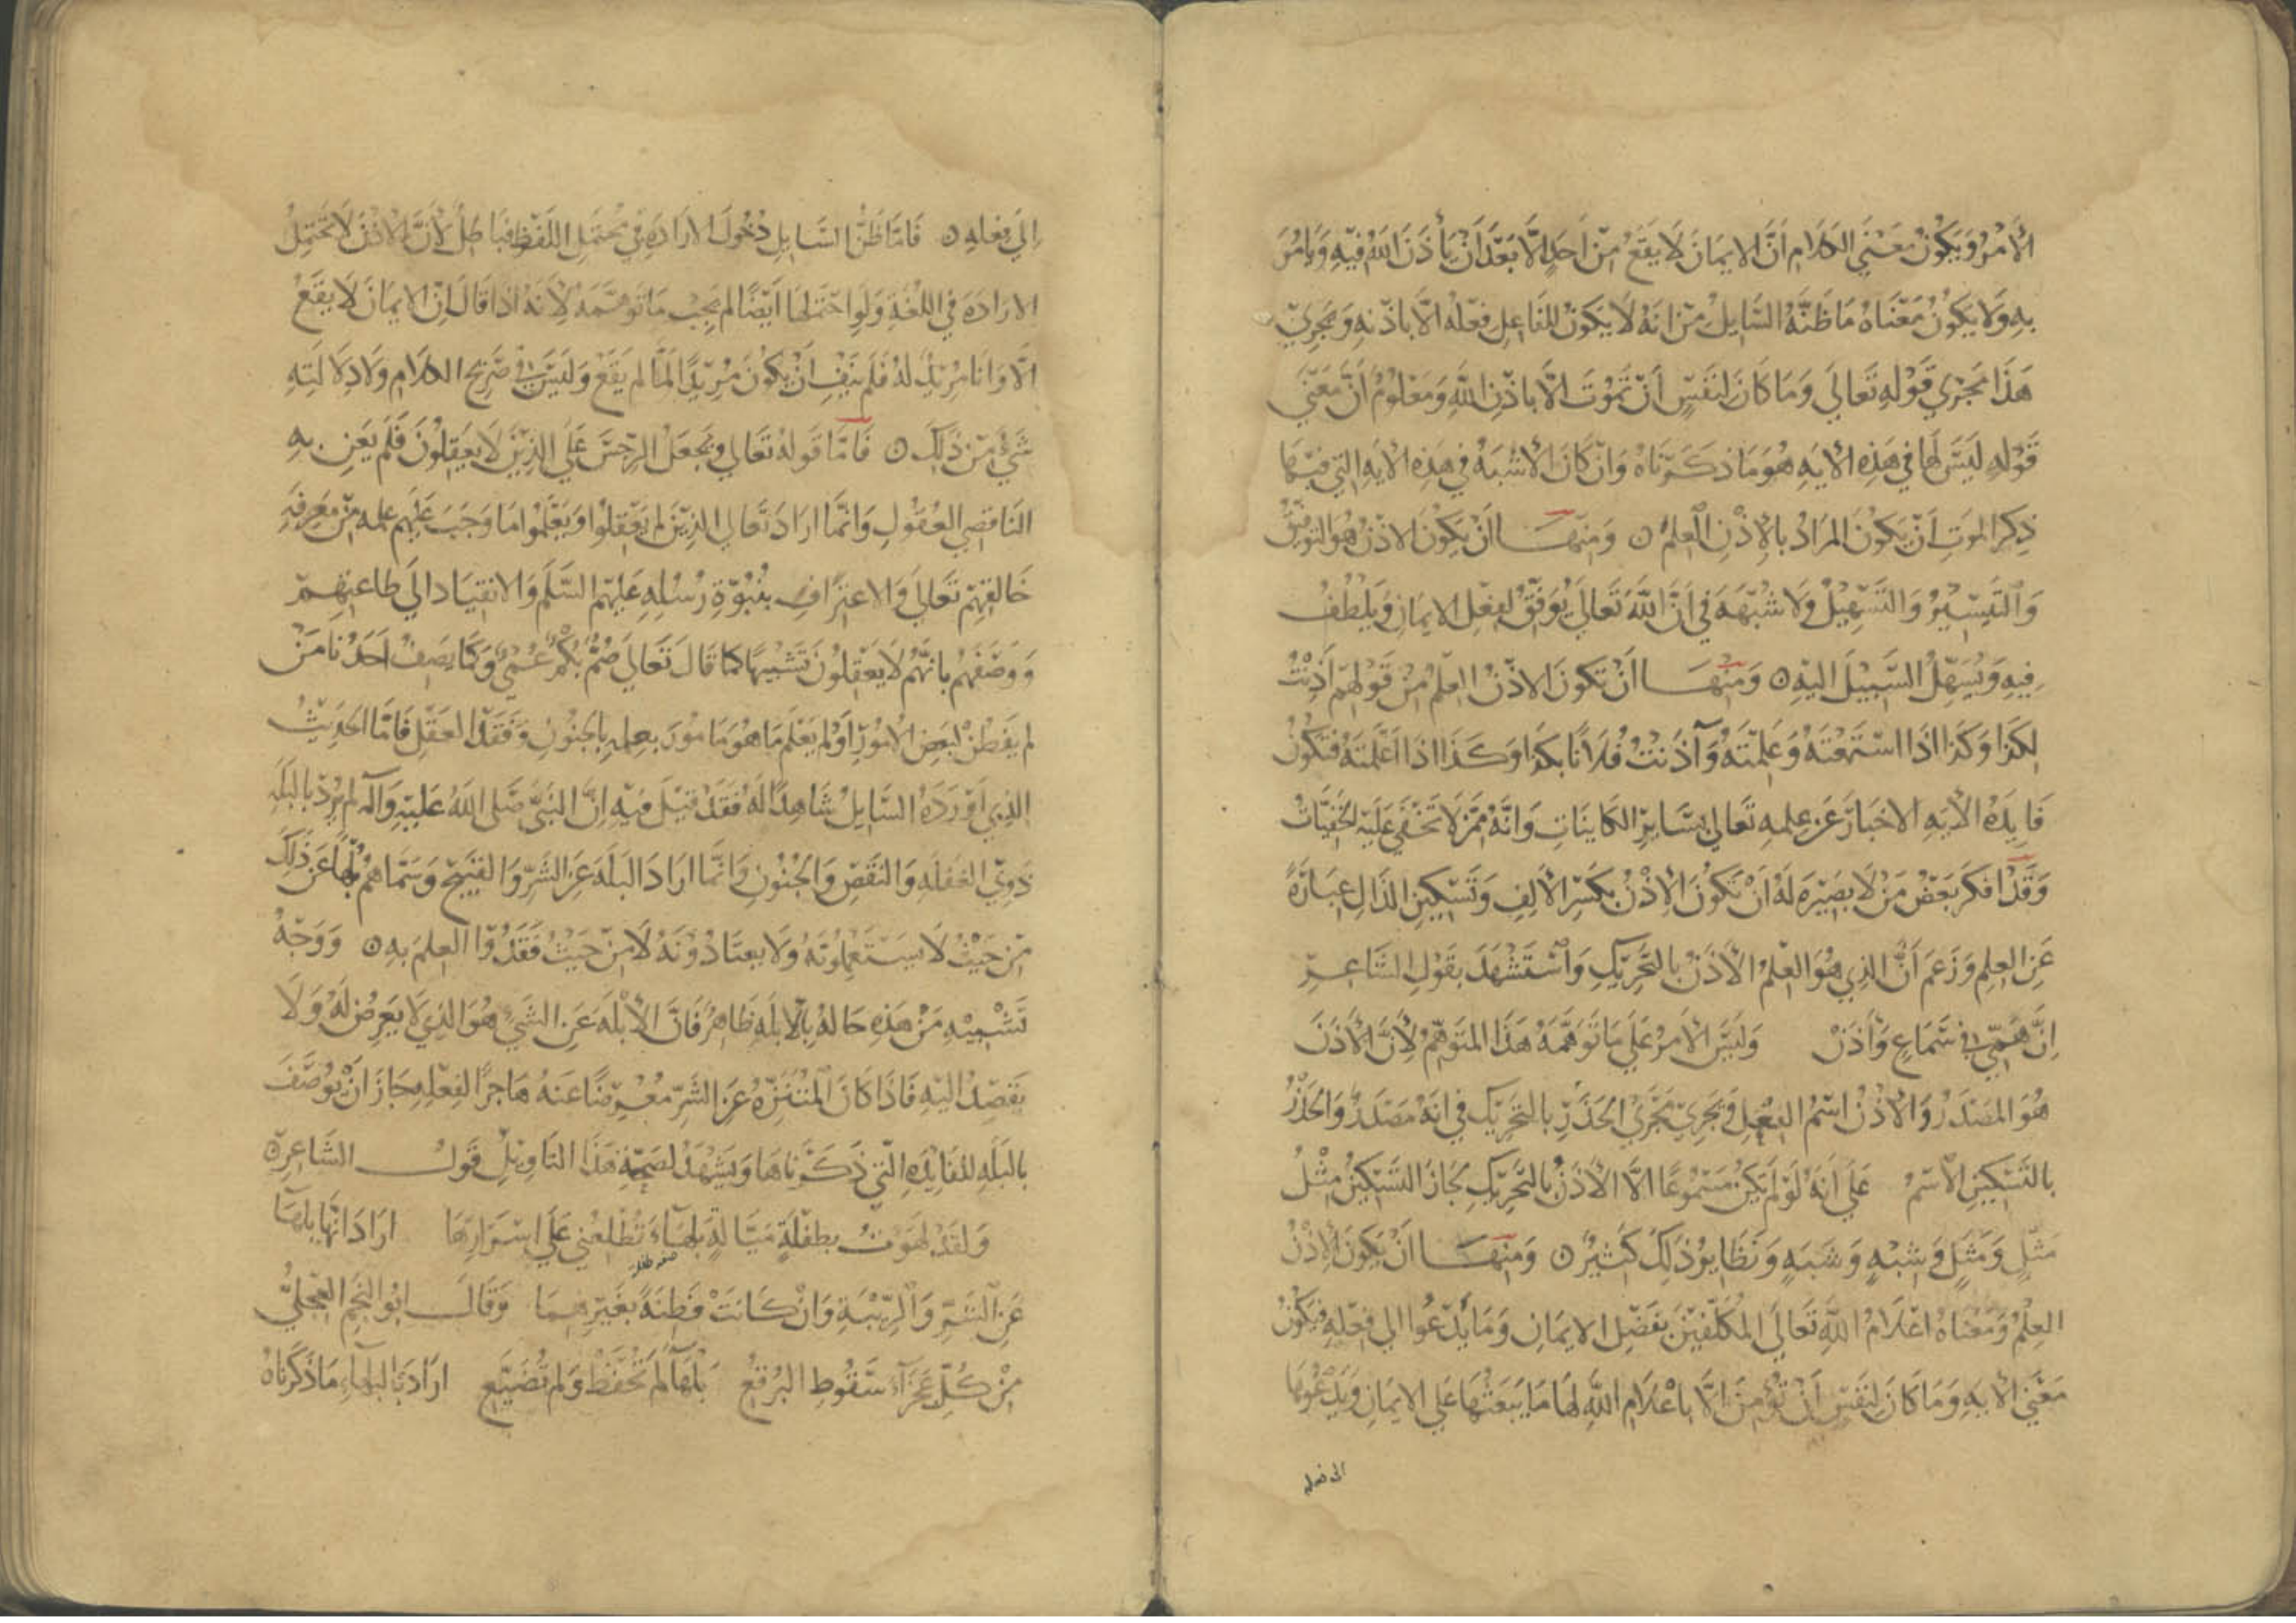 الأمْرُ وَيَكُونُ مَعْنَي الكلام اَنَّ الايمَانَ لَا يَقَعُ مِنْ اَحَدٍ اِلَّا بَعْدَ اَنْ يَأذَنَ اللهُ فِيهِ وَيَامُرَ
بِهِ وَلَا يَكُونُ مَعْنَاهُ مَا ظَنَّهُ السَّايِلُ مِنْ اَنهُ لَا يَكونُ للفَاعِلِ فِعْلُهُ الّا باذنِهِ وَيَجْرِي
هَذا مَجْرَي قَوْلِهِ تَعَالَي وَمَا كَانَ لِنَفْسٍ اَنْ تَمُوْتَ الّا باِذْنِ اللهِ وَمَعْلُومٌ اَنَّ مَعْنَي
قَوْلِهِ لَيْسَ لَهَا في هَذِهِ الأيَهِ هُوَ مَا ذَكَرْنَاهُ وَانْ كَانَ الأشْبَهُ في هذِهِ الأيَهِ التي فِيْهَا
ذِكرُ الموتِ اَنْ يَكونَ المرَادُ بالإذْنِ العلمُ ه وَمِنهَا اَنْ يَكُونَ الاذْنُ هُوَ التوفِيْقُ
وَالتَّيسِيْرُ وَالتَّسْهِيْلُ وَلَا شُبْهَهَ فِي اَنَّ اللهَ تَعَالَي يُوَفِّقُ لِفِعْلِ الايمَانِ وَيلْطُفُ
فِيهِ وَيُسَهِّلُ السَّبِيْلَ اليْهِ ه وَمِنْهَا اَنْ تَكونَ الاذْنُ العِلمُ مِنْ قَوْلهِمْ اَذِنْتُ
لِكَذا وَكَذا اذَا اسْتَمَعْتَهُ وَعَلِمْتَهُ وَآذَنتُ فُلَانًا بكَذا وَكَذَا اذَا اَعْلَمْتَهُ فتَكُونُ
فَايدَةُ الأيَهِ الاخبَارَ عَنْ عِلمِهِ تَعَالَي بِسَايِرِ الكَاينَاتِ وَانَّهُ مِمَّنْ لَا تَخْفَي عَلَيْهِ الخَفِيَّاتُ
وَقَدْ اَنكَرَ بَعْضُ مَنْ لَا بَصِيْرَهَ لَهُ اَنْ تكُونَ الإذْنُ بِكَسْرِ الألِفِ وَتَسْكِينِ الذَالِ عِبَارَةً
عَنِ العِلمِ وَزَعَمَ اَنَّ الذِي هُوَ العِلْمُ الأذَنُ بالتَّحْرِيْكِ وَاسْتَشْهَدَ بقَوْلِ الشَّاعِرِ
اِنَّ هَمّي في سَمَاعٍ وَأذَنْ وَلَيْسَ الأمرُ عَلَي مَا تَوَهَّمَهُ هَذَا المتَوَهِّمُ لِأنَّ الأذَنَ
هُوَ المصْدَرُ وَالأذْنُ اسْمُ الفِعْلِ وَيَجري مَجْرَي الحَذَرِ بالتحْرِيْكِ في انّهُ مَصْدَرٌ وَالحِذْرُ
بالتَسْكِينِ الأسْمُ عَلَي اَنهُ لَوْ لَمْ يَكنْ مَسْمُوعًا الّا الأذَنُ بالتَّحْرِيْكِ لجَازَ التسْكِينُ مِثْلُ
مَثَلٍ وَمِثْلٍ وَشِبْهٍ وَشَبَهٍ وَنَظَايرُ ذَلِكَ كَثيْرٌ ه وَمِنْهَا اَنْ يَكونَ الأِذْنُ
العِلْمَ وَمَعْنَاهُ اعْلَامُ اللهِ تَعَالَي المُكَلَّفِيْنَ بفَضْلِ الايمَانِ وَمَا يَدْعُوا الي فِعْلِهِ فيَكُونُ
مَعْنَي الأيَهِ وَمَا كَانَ لِنَفْسٍ اَنْ تُؤمِنَ الّا باِعْلَامِ اللهِ لهَا مَا يَبعَثُهَا عَلَي الايمَانِ وَيَدْعُوهَا
الى فعله
اِلَي فِعْلِهِ ه فَامَّا ظَنُّ السَّايِلِ دُخُولَ الارَادَهِ في مُحْتَمَلِ اللّفظِ فَبَاطِلٌ لِأنَّ الاذْنَ لَا تَحْتَمِلُ
الارَادَهَ في اللغَةِ وَلَوِ احْتَمَلهَا اَيْضًا لم يَجِبْ مَا تَوَهَّمَهُ لِأنَهُ اذَا قَالَ اِنّ الايمَانَ لَا يَقَعُ
الّا وَانَا مُرِيْدٌ لهُ فَلَم يَنْفِ اَنْ يكُونَ مُرِيْدًا لمَا لم يَقَعْ وَلَيْسَ في صَرِيحِ الكلَام وَلَا دِلَالَتِهِ
شَيْءٌ مِنْ ذَلِكَ ه فَامَّا قَولهُ تَعَالي وَيَجْعَلُ الرِّجْسَ عَلَي الذِيْنَ لَا يَعْقِلُونَ فَلَم يَعْنِ بهِ
النَاقِصِي العُقولِ وَانَّمَا ارَادَ تَعَالي الذِيْنَ لم يَعْقِلوْا وَيَعْلَمُوا مَا وَجَبَ عَلَيهِم عِلمهُ مِنْ مَعْرِفَهِ
خَالقِهِمْ تَعَالَي وَالاعتِرَافِ بنُبُوَّةِ رُسُلِهِ عَلَيهِم السَّلَم وَالانقِيَادِ الي طَاعتِهِمْ
وَوَصَفَهُمْ بانَّهُم لَا يَعْقِلُونَ تَشْبِيهًا كما قَالَ تَعَالي صُمٌّ بُكْمٌ عُمْيٌ وَكَمَا يَصِفُ اَحَدُنَا مَنْ
لم يَفطنْ لبَعضِ الأمُورِ اَوْ لم يَعْلَمْ مَا هُوَ مَامُورٌ بعِلمهِ بالجنُونِ وَفَقْدِ العَقْلِ فَامّا الحَدِيْثُ
الذِي اَوْرَدَهُ السَّايِلُ شَاهِدًا لهُ فَقَدْ قيْلَ فِيْهِ اِنَّ النَبيَّ صَلي اللهُ عَلَيْهِ وَآلهِ لم يُرِدْ بالبُلَهِ
ذَوِي الغَفْلَهِ وَالنَقْصِ وَالجُنُونِ وَانّمَا ارَادَ البُلْهَ عَنِ الشَّرِّ وَالقَبِيْحِ وَسَمَّاهُمْ بُلْهًا عَنْ ذَلِكَ
مِنْ حَيْثُ لَا يَسْتَعْمِلُونَهُ وَلَا يَعتَادُوْنَهُ لَا مِنْ حَيْثُ فَقَدُوْا العِلمَ بهِ ه وَوَجْهُ
تَشْبِيْهِ مَنْ هَذِهِ حَالهُ بالأبْلَهِ ظَاهِرٌ فَانَّ الأبْلَهَ عَنِ الشيْءِ هُوَ الذِي لَا يَعرِضُ لَهُ وَلَا
يَقصِدُ اليْهِ فَاذَا كَانَ المُتَنَزِّهُ عَنِ الشَرِّ مُعْرِضًا عَنهُ هَاجرًا لفِعْلِهِ جَازَ اَنْ يُوصَفَ
بالبَلَهِ للفَايْدَهِ التي ذَكَرْنَاهَا وَيَشْهَدُ لصِحّةِ هَذَا التَّاوِيْلِ قَولُ الشَاعِرِ ه
وَلقَدْ لهَوْتُ بطِفْلَةٍ مَيَّالَةٍ بَلهَاءَ تُطْلِعُني عَلَي اسْرَارِهَا ارَادَ انّهَا بَلهَا
عَنِ الشَّرِّ وَالرِّيْبَةِ وَانْ كَانَتْ فَطِنَةً بغَيْرِهِمَا وَقَالَ ابُو النَّجمِ العِجْليُّ
مِنْ كُلِّ عَجزَآءَ سَقُوطِ البُرْقعُ بَلْهَآ لَمْ تُحْفَظْ وَلم تُضَيَّعِ ارَادَ بالبلهَآءِ مَا ذَكَرْنَاهُ